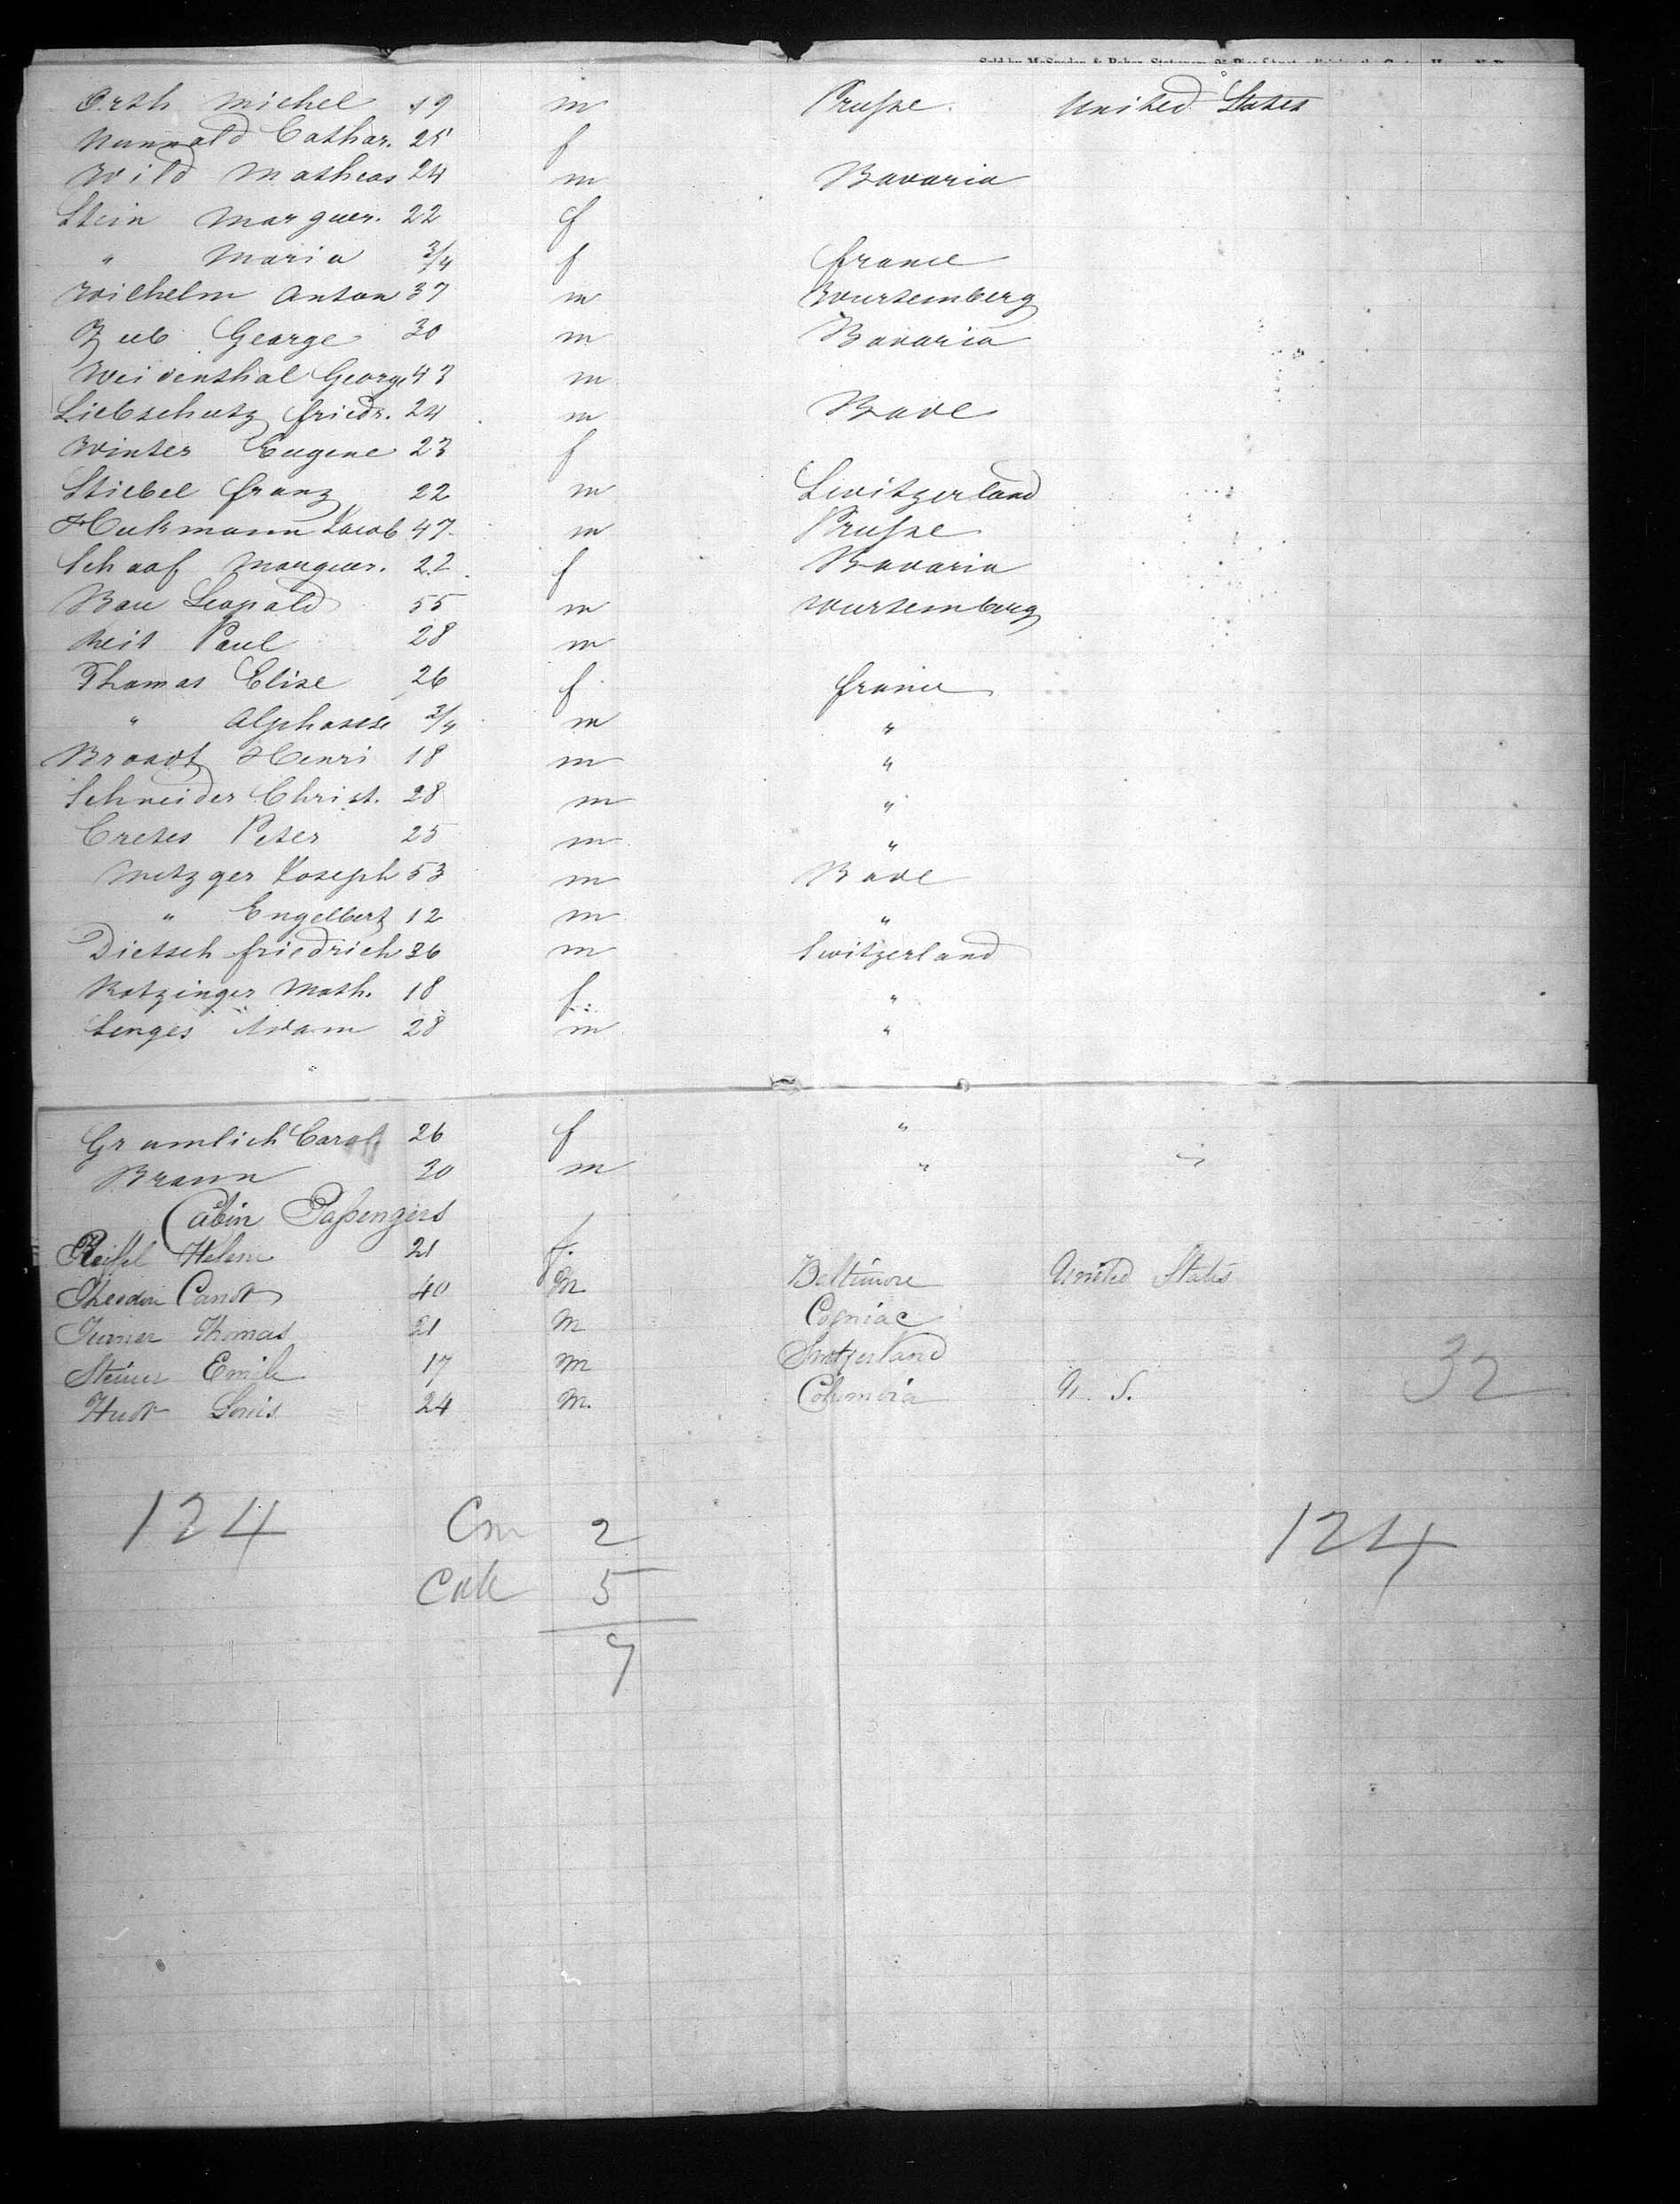 Orth Michel 19 m Prusse United States
Nunnold Cathar. 25 f
Wild Matheas 24 m Bavaria
Stein Marguer. 22 f
" Maria 3/4 f france
Wilhelm Anton 37 m Wurtemberg
Zub George 30 m Bavaria
Weidenthal George 43 m
Liebschutz friedr. 24 m Bade
Winter Eugene 23 f
Stiebel franz 22 m Switzerland
Huckmann Jacob 47 m Prusse
Schaaf Marguer. 22 f Bavaria
Bau Leopold 55 m Wurtemberg
Neit Paul 28 m
Thomas Elise 26 f france
" Alphonse 3/4 m "
Brandt Henri 18 m "
Schneider Christ. 28 m "
Cretes Peter 25 m "
Metzger Joseph 53 m Bade
" Engelbert 12 m "
Dietsch friedrich 36 m Switzerland
Ratzinger Math. 18 f "
Senges Adam 28 m "
Gramlich 26 f "
Braun 30 m " "
Cabin Passengers
Helene 21 f. Baltimore United States
Theodore Canot 40 m Cogniac
Turner Thomas 21 m
Steiner Emile 17 m Switzerland
Louis 24 m. Columbia U. S. 32
124 2 124
5
7